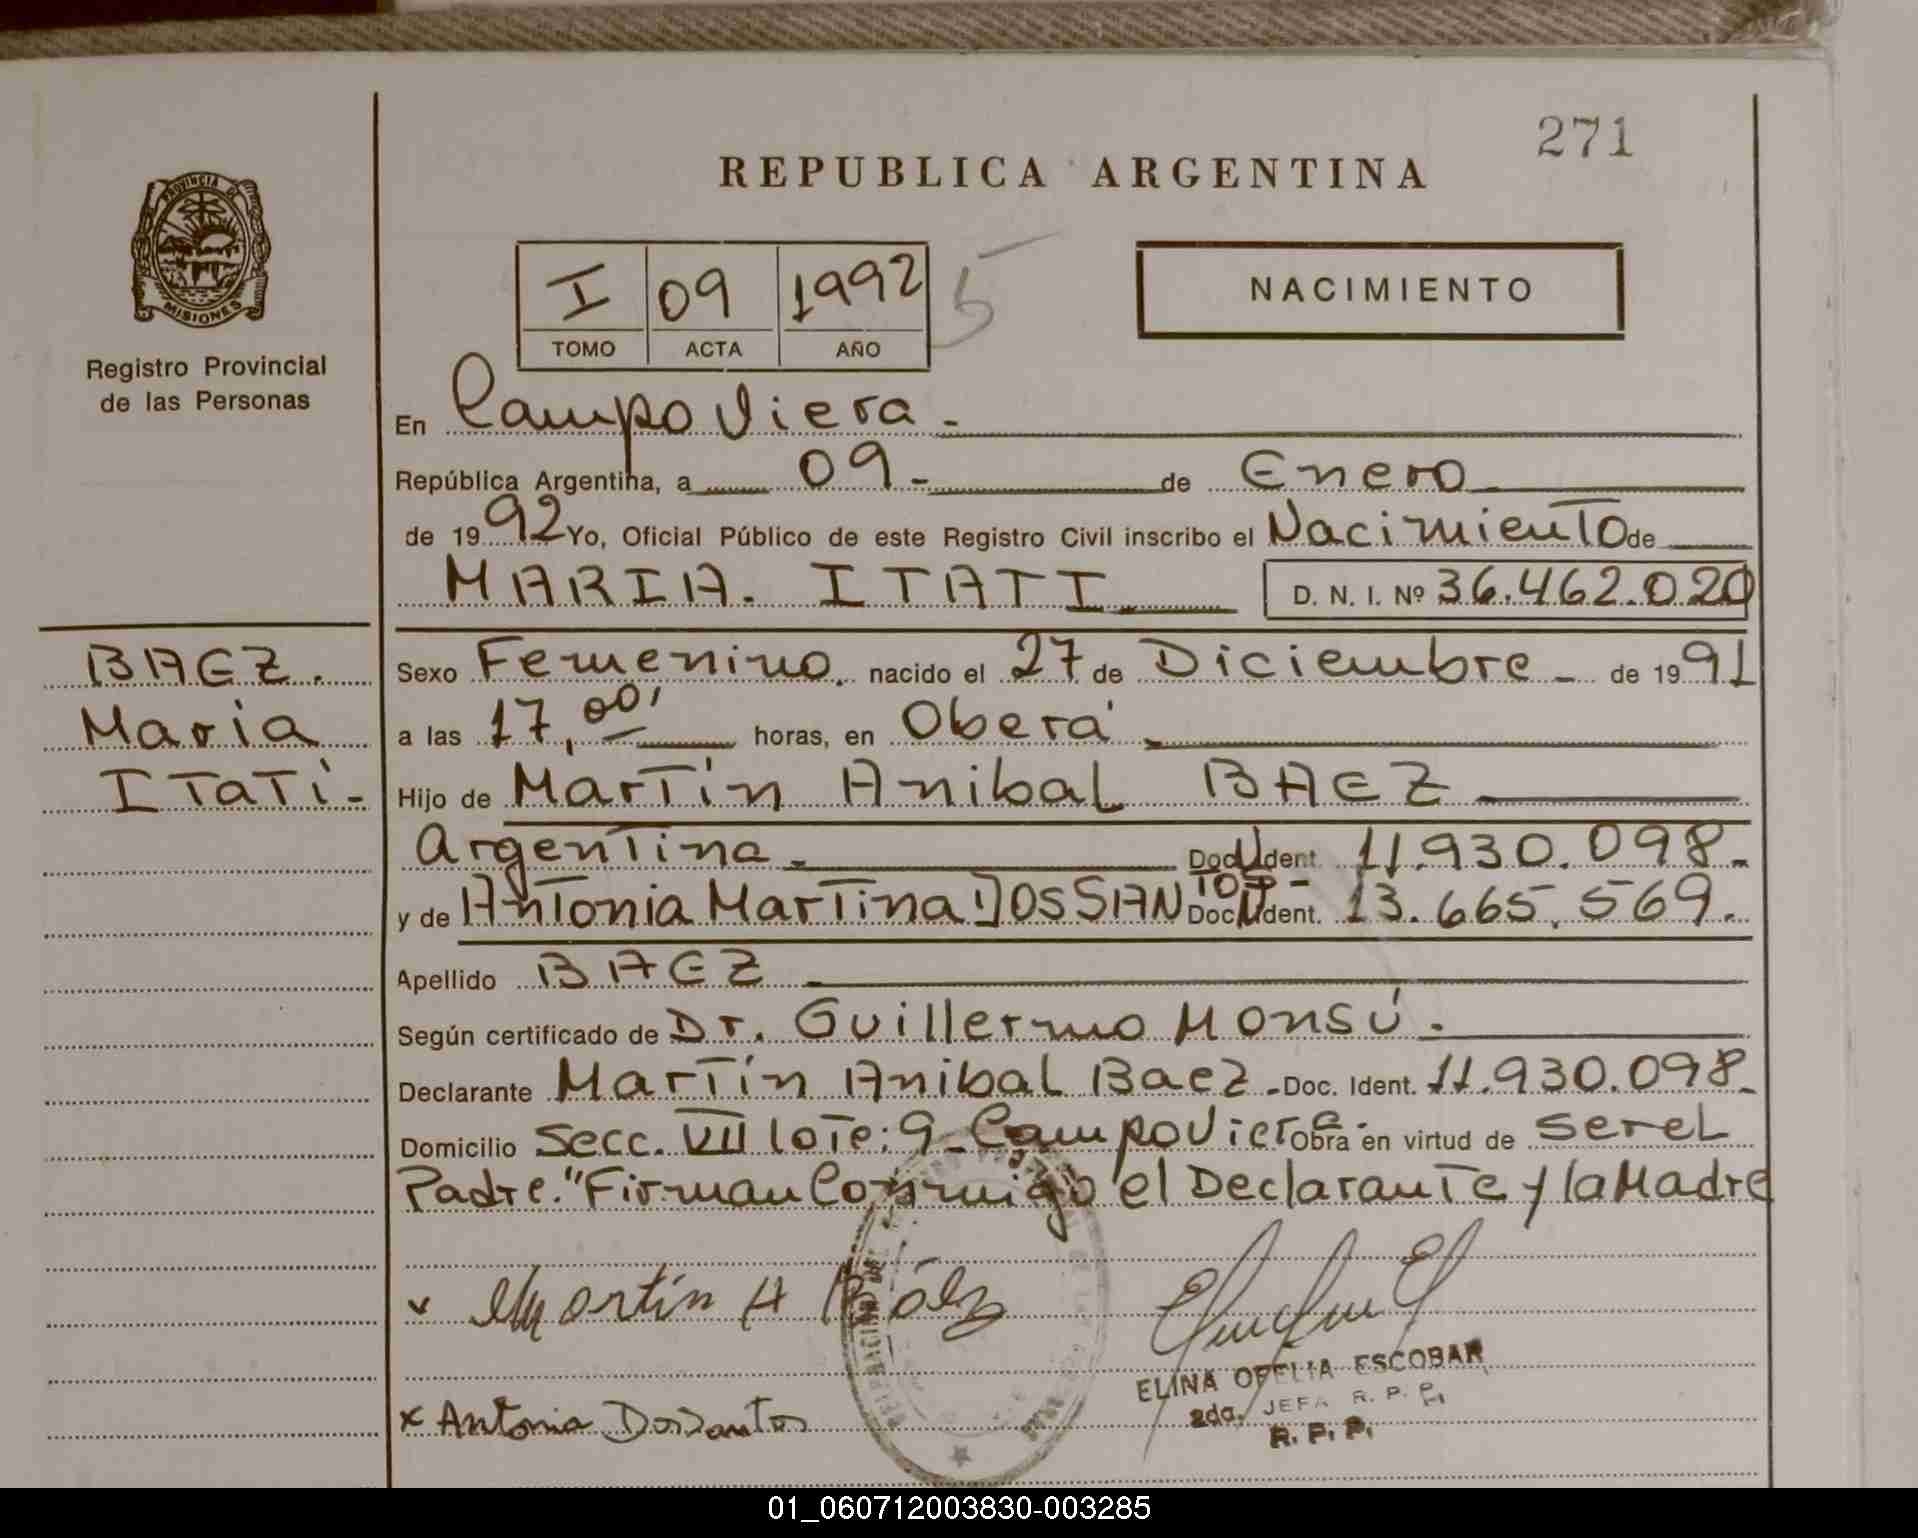 271
REPUBLICA ARGENTINA
PROVINCIA DE
MISIONES
Registro Provincial
de las Personas
I 09 1992 5
TOMO ACTA AÑO
NACIMIENTO
En Campo Viera -
República Argentina, a 09.- de Enero
de 1992 Yo, Oficial Público de este Registro Civil inscribo el Nacimiento de
MARIA. ITATI D. N. I. Nº 36.462.020
BAEZ.
Maria
ITaTí-
Sexo Femenino. nacido el 27 de Diciembre - de 1991
a las 17,00' horas, en Oberá
Hijo de Martín Anibal BAEZ
Argentina.- Doc. Ident. 11.930.098.-
y de Antonia Martina DOSSANTOS- Doc. Ident. 13.665.569.
Apellido BAEZ
Según certificado de Dr. Guillermo Monsú.
Declarante Martín Anibal Baez.- Doc. Ident. 11.930.098.-
Domicilio Secc. VII lote: 9- Campo Viera Obra en virtud de ser el
Padre." Firman Conmigo el Declarante y la Madre
x Martín A Báez
ELINA OFELIA ESCOBAR
2da. JEFA R. P. P.
R. P. P.
x Antonia Dossantos
01_060712003830-003285